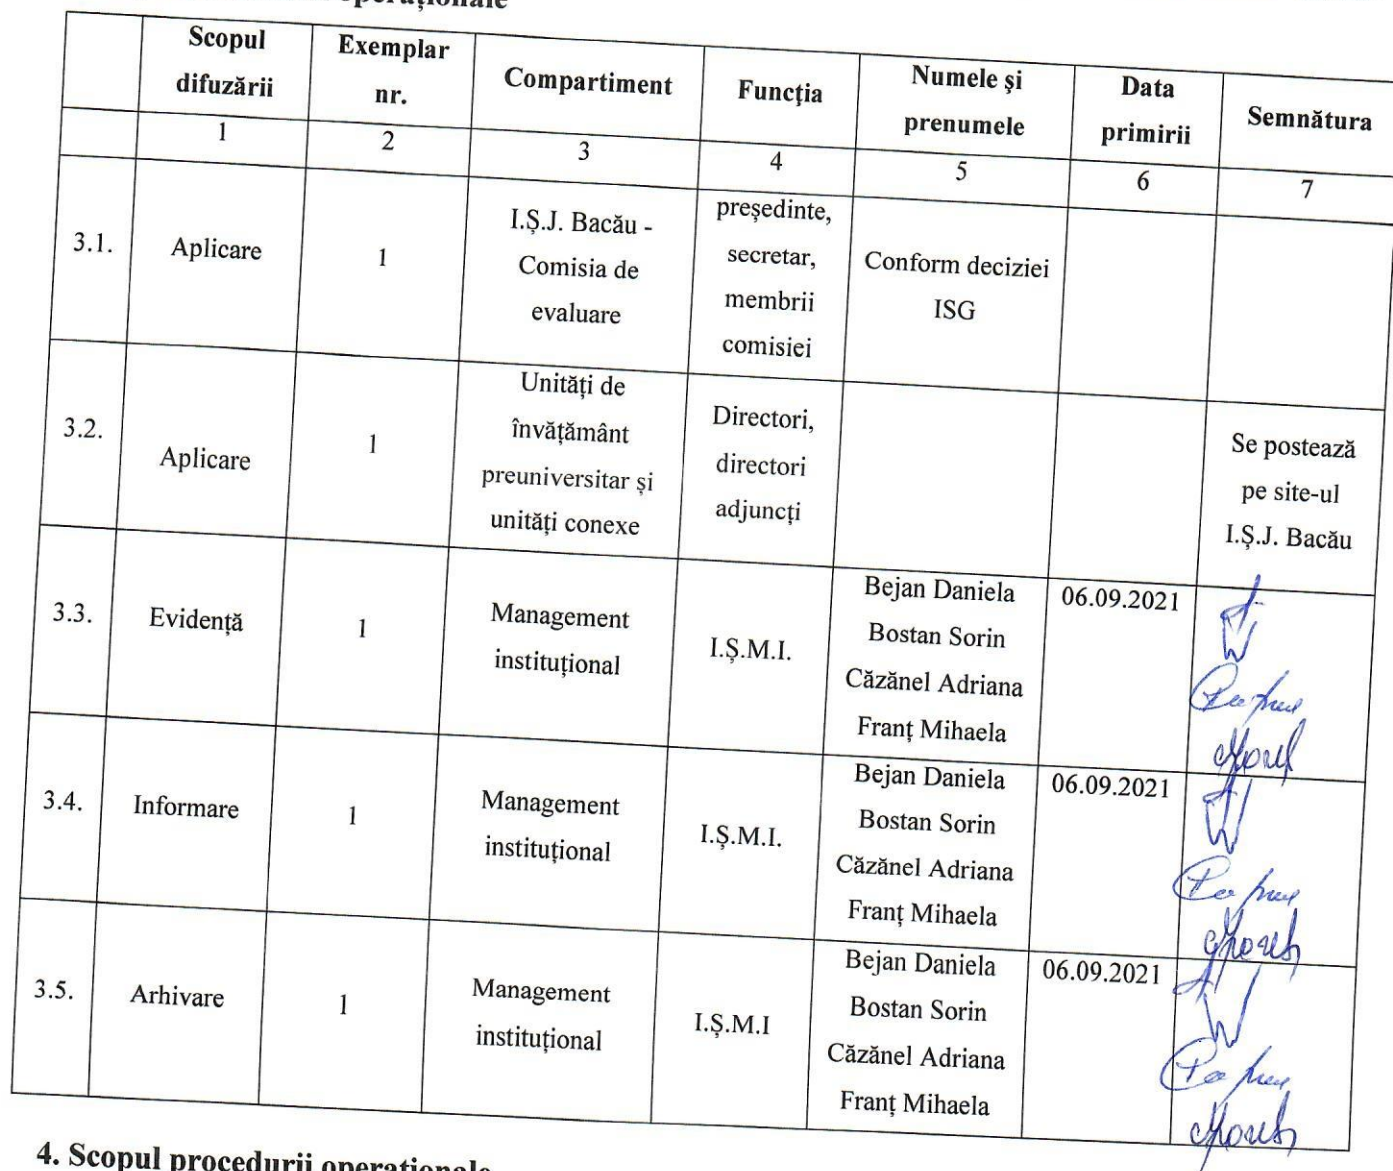 operaționale
Scopul difuzării
Exemplar nr.
Compartiment
Funcția
Numele și prenumele
Data primirii
Semnătura
1
2
3
4
5
6
7
3.1.
Aplicare
1
I.Ș.J. Bacău -
Comisia de
evaluare
președinte,
secretar,
membrii
comisiei
Conform deciziei
ISG
3.2.
Aplicare
1
Unități de
învățământ
preuniversitar și
unități conexe
Directori,
directori
adjuncți
Se postează
pe site-ul
I.Ș.J. Bacău
3.3.
Evidență
1
Management
instituțional
I.Ș.M.I.
Bejan Daniela
Bostan Sorin
Căzănel Adriana
Franț Mihaela
06.09.2021
3.4.
Informare
1
Management
instituțional
I.Ș.M.I.
Bejan Daniela
Bostan Sorin
Căzănel Adriana
Franț Mihaela
06.09.2021
3.5.
Arhivare
1
Management
instituțional
I.Ș.M.I
Bejan Daniela
Bostan Sorin
Căzănel Adriana
Franț Mihaela
06.09.2021
4. Scopul procedurii operaționale